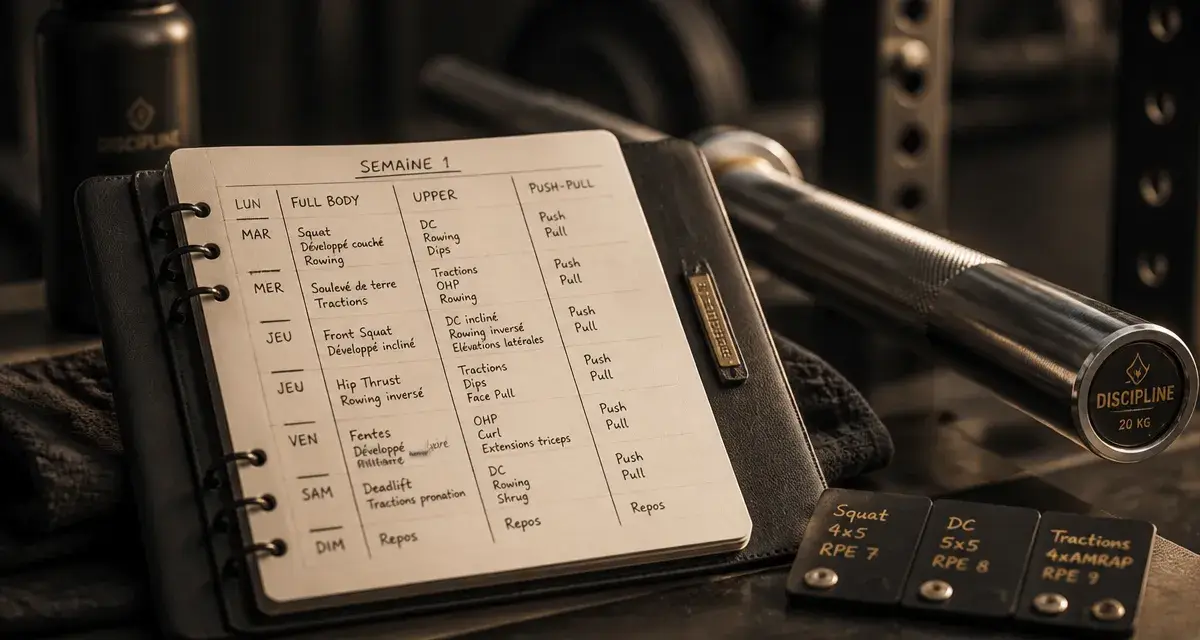 DISCIPLINE
SEMAINE 1
LUN FULL BODY UPPER PUSH-PULL
MAR
Squat
Développé couché
Rowing
DC
Rowing
Dips
Push
Pull
MER
Soulevé de terre
Tractions
Tractions
OHP
Rowing
Push
Pull
JEU
Front Squat
Développé incliné
DC incliné
Rowing inversé
Elévations latérales
Push
Pull
JEU
Hip Thrust
Rowing inversé
Tractions
Dips
Face Pull
Push
Pull
VEN
Fentes
Développé
OHP
Curl
Extensions triceps
Push
Pull
SAM
Deadlift
Tractions pronation
DC
Rowing
Shrug
Push
Pull
DIM Repos Repos Repos
DISCIPLINE
20 KG
Squat
4x5
RPE 7
DC
5x5
RPE 8
Tractions
4xAMRAP
RPE 9